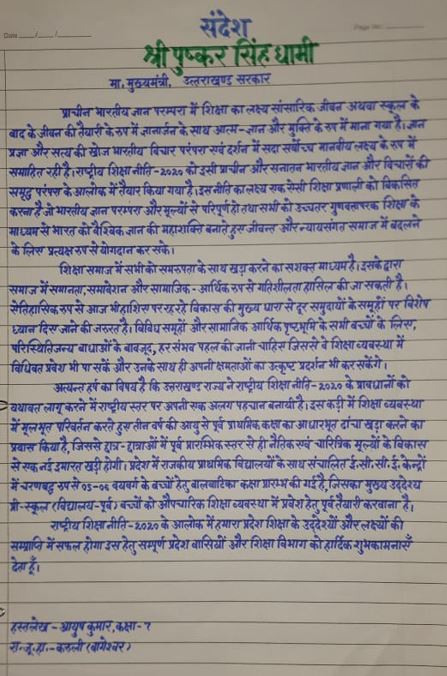 Date ___/___/___
Page No.
संदेश
श्री पुष्कर सिंह धामी
मा. मुख्यमंत्री, उत्तराखण्ड सरकार
प्राचीन भारतीय ज्ञान परम्परा में शिक्षा का लक्ष्य सांसारिक जीवन अथवा स्कूल के
बाद के जीवन की तैयारी के रुप में ज्ञानार्जन के साथ आत्म-ज्ञान और मुक्ति के रुप में माना गया है। ज्ञान
प्रज्ञा और सत्य की खोज भारतीय विचार परंपरा एवं दर्शन में सदा सर्वोच्च मानवीय लक्ष्य के रुप में
समाहित रही है। राष्ट्रीय शिक्षा नीति-2020 को इसी प्राचीन और सनातन भारतीय ज्ञान और विचारों की
समृद्ध परंपरा के आलोक में तैयार किया गया है। इस नीति का लक्ष्य एक ऐसी शिक्षा प्रणाली को विकसित
करना है जो भारतीय ज्ञान परम्परा और मूल्यों से परिपूर्ण हो तथा सभी को उच्चतर गुणवत्तापरक शिक्षा के
माध्यम से भारत को वैश्विक ज्ञान की महाशक्ति बनाते हुए जीवन्त और न्यायसंगत समाज में बदलने
के लिए प्रत्यक्ष रुप से योगदान कर सके।
शिक्षा समाज में सभी को समरुपता के साथ खड़ा करने का सशक्त माध्यम है। इसके द्वारा
समाज में समानता, समावेशन और सामाजिक-आर्थिक रुप से गतिशीलता हासिल की जा सकती है।
ऐतिहासिक रुप से आज भी हाशिए पर रह रहे विकास की मुख्य धारा से दूर समुदायों के समूहों पर विशेष
ध्यान दिए जाने की जरुरत है। विविध समूहों और सामाजिक आर्थिक पृष्ठभूमि के सभी बच्चों के लिए,
परिस्थितिजन्य बाधाओं के बावजूद, हर संभव पहल की जानी चाहिए जिससे वे शिक्षा व्यवस्था में
विधिवत प्रवेश भी पा सकें और उनके साथ ही अपनी क्षमताओं का उत्कृष्ट प्रदर्शन भी कर सकेंगे।
अत्यन्त हर्ष का विषय है कि उत्तराखण्ड राज्य ने राष्ट्रीय शिक्षा नीति-2020 के प्रावधानों को
यथावत लागू करने में राष्ट्रीय स्तर पर अपनी एक अलग पहचान बनायी है। इस कड़ी में शिक्षा व्यवस्था
में मूलभूत परिवर्तन करते हुए तीन वर्ष की आयु से पूर्व प्राथमिक कक्षा का आधारभूत ढांचा खड़ा करने का
प्रयास किया है, जिससे छात्र-छात्राओं में पूर्व प्रारम्भिक स्तर से ही नैतिक एवं चारित्रिक मूल्यों के विकास
से एक नई इमारत खड़ी होगी। प्रदेश में राजकीय प्राथमिक विद्यालयों के साथ संचालित ई.सी.सी.ई. केन्द्रों
में चरणबद्ध रुप से 05-06 वयवर्ग के बच्चों हेतु बालवाटिका कक्षा प्रारम्भ की गई है, जिसका मुख्य उद्देश्य
प्री-स्कूल (विद्यालय-पूर्व) बच्चों को औपचारिक शिक्षा व्यवस्था में प्रवेश हेतु पूर्व तैयारी करवाना है।
राष्ट्रीय शिक्षा नीति-2020 के आलोक में हमारा प्रदेश शिक्षा के उद्देश्यों और लक्ष्यों की
सम्प्राप्ति में सफल होगा इस हेतु सम्पूर्ण प्रदेश वासियों और शिक्षा विभाग को हार्दिक शुभकामनाएँ
देता हूँ।
हस्तलेख - आयुष कुमार, कक्षा-7
रा.जू.हा.- कठली (बागेश्वर)